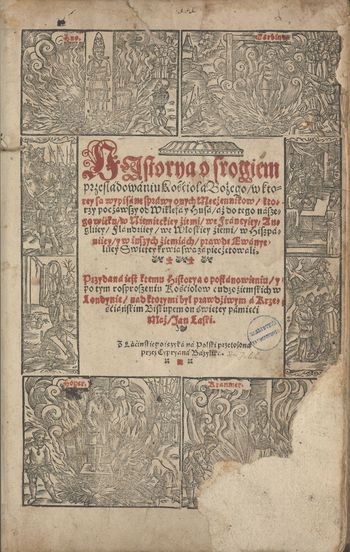 Hus.
Historya o srogiem
prześladowaniu Kościoła Bożego / w kto-
rey są wypisane sprawy onych Męczennikow / kto-
rzy począwszy od Wiklefa y Husa / aż do tego nasze-
go wieku / w Niemieckiey ziemi / w Francyiey / An-
gliiey / Flandriiey / we Włoskiey ziemi / w Hiszpá-
niiey / y w inszych ziemiach / prawdę Ewánye-
liiey Swiętey krwią swą zápieczętowáli.
Przydana iest ktemu Historya o postanowieniu / y
po tym rosproszeniu Kościołow cudzoziemskich w
Londynie / nad ktorymi był prawdziwym a Krześ-
ciáńskim Biskupem on święty pamięci
Mąż / Jan Łaski.
Z Łacińskiego ięzyká ná Polski przełożona
przez Cypryaná Bázyliká.
Hoper.
Kranmer.